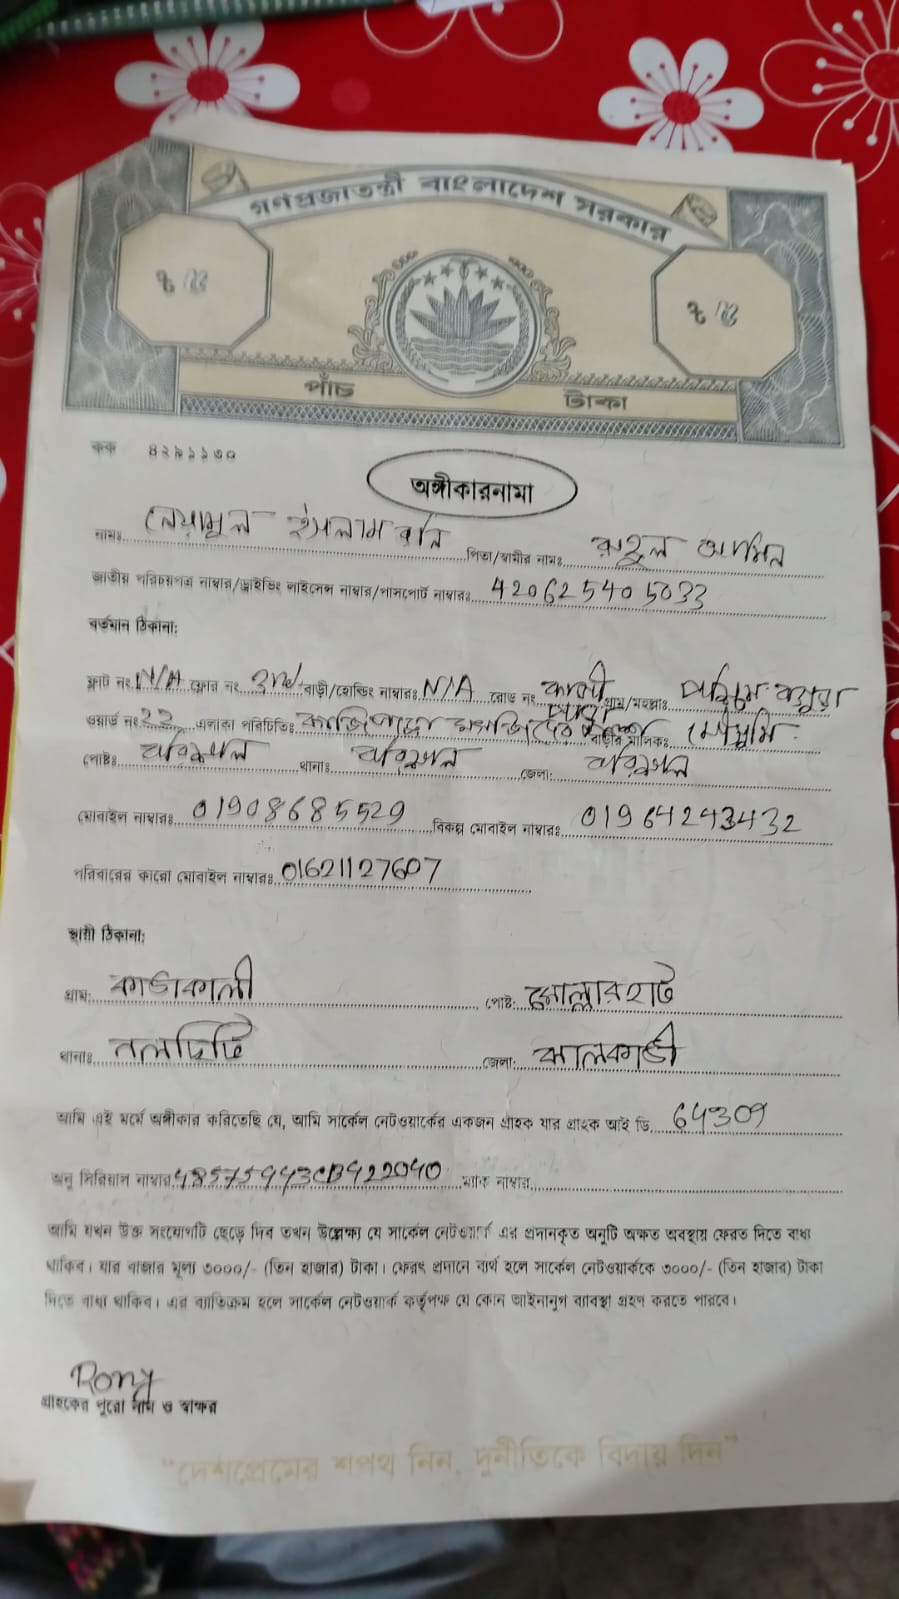 গণপ্রজাতন্ত্রী বাংলাদেশ সরকার
৳ ৫ ৳ ৫
পাঁচ টাকা
কক ৪২৯১১৩০
অঙ্গীকারনামা
নামঃ নেয়ামুল ইসলাম রনি পিতা/স্বামীর নামঃ রুহুল আমিন
জাতীয় পরিচয়পত্র নাম্বার/ড্রাইভিং লাইসেন্স নাম্বার/পাসপোর্ট নাম্বারঃ 420625405033
বর্তমান ঠিকানা:
ফ্লাট নং N/A ফ্লোর নং 3rd বাড়ী/হোল্ডিং নাম্বারঃ N/A রোড নং কাজী পাড়া গ্রাম/মহল্লাঃ পশ্চিম
ওয়ার্ড নং 22 এলাকা পরিচিতিঃ কাজিপাড়া মসজিদের বাড়ীর মালিকঃ মৌসুমি
পোষ্টঃ বরিশাল থানাঃ বরিশাল জেলা: বরিশাল
মোবাইল নাম্বারঃ 01908685529 বিকল্প মোবাইল নাম্বারঃ 01964243432
পরিবারের কারো মোবাইল নাম্বারঃ 01621127607
স্থায়ী ঠিকানা:
গ্রাম: কাঠাকালী পোষ্ট: মোল্লারহাট
থানাঃ নলছিটি জেলা: ঝালকাঠী
আমি এই মর্মে অঙ্গীকার করিতেছি যে, আমি সার্কেল নেটওয়ার্কের একজন গ্রাহক যার গ্রাহক আই ডি 64309
অনু সিরিয়াল নাম্বার 48575443CB422040 ম্যাক নাম্বার
আমি যখন উক্ত সংযোগটি ছেড়ে দিব তখন উল্লেক্ষ্য যে সার্কেল নেটওয়ার্ক এর প্রদানকৃত অনুটি অক্ষত অবস্থায় ফেরত দিতে বাধ্য
থাকিব। যার বাজার মূল্য ৩০০০/- (তিন হাজার) টাকা। ফেরৎ প্রদানে ব্যর্থ হলে সার্কেল নেটওয়ার্ককে ৩০০০/- (তিন হাজার) টাকা
দিতে বাধ্য থাকিব। এর ব্যতিক্রম হলে সার্কেল নেটওয়ার্ক কর্তৃপক্ষ যে কোন আইনানুগ ব্যাবস্থা গ্রহণ করতে পারবে।
Rony
গ্রাহকের পুরো নাম ও স্বাক্ষর
"দেশপ্রেমের শপথ নিন, দুর্নীতিকে বিদায় দিন"